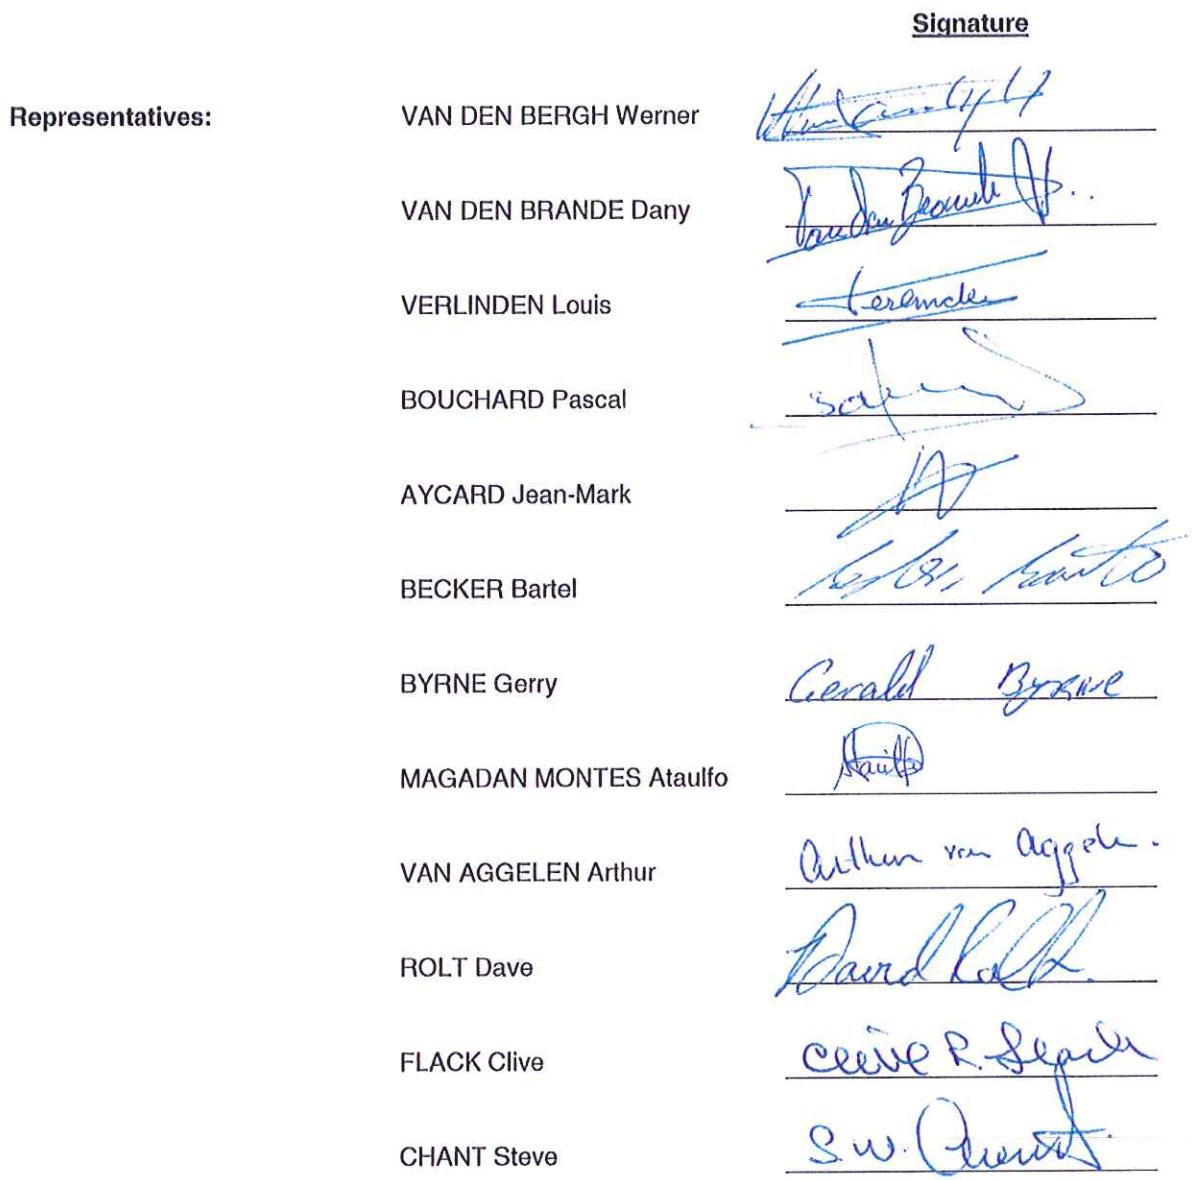 Signature
Representatives: VAN DEN BERGH Werner
VAN DEN BRANDE Dany Van Den Brande
VERLINDEN Louis
BOUCHARD Pascal
AYCARD Jean-Mark
BECKER Bartel
BYRNE Gerry Gerald Byrne
MAGADAN MONTES Ataulfo
VAN AGGELEN Arthur Arthur van Aggelen.
ROLT Dave David
FLACK Clive Clive R. Flack
CHANT Steve S.W. Chant